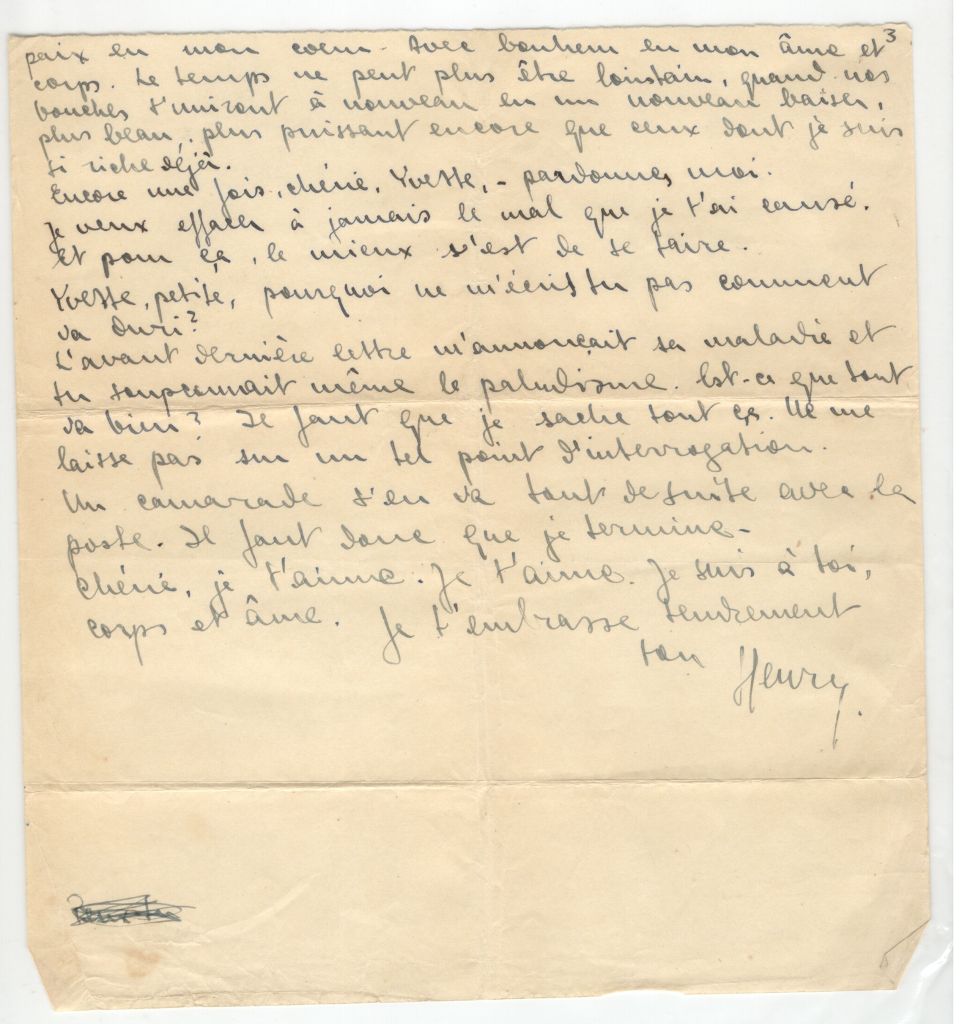 3
paix en mon coeur - Avec bonheur en mon âme et
corps. Le temps ne peut plus être lointain, quand nos
bouches s'uniront à nouveau en un nouveau baiser,
plus beau, plus puissant encore que ceux dont je suis
si riche déjà.
Encore une fois, chérie, Yvette, - pardonnes moi.
Je veux effacer à jamais le mal que je t'ai causé.
Et pour ça, le mieux s'est de se taire.
Yvette, petite, pourquoi ne m'écris tu pas comment
va Duri?
L'avant dernière lettre m'annonçait sa maladie et
tu soupçonnait même le paludisme. Est-ce que tout
va bien? Il faut que je sache tout ça. Ne me
laisse pas sur un tel point d'interrogation.
Un camarade s'en va tout de suite avec la
poste. Il faut donc que je termine -
Chérie, je t'aime. Je t'aime. Je suis à toi,
corps et âme. Je t'embrasse tendrement
ton Henry.